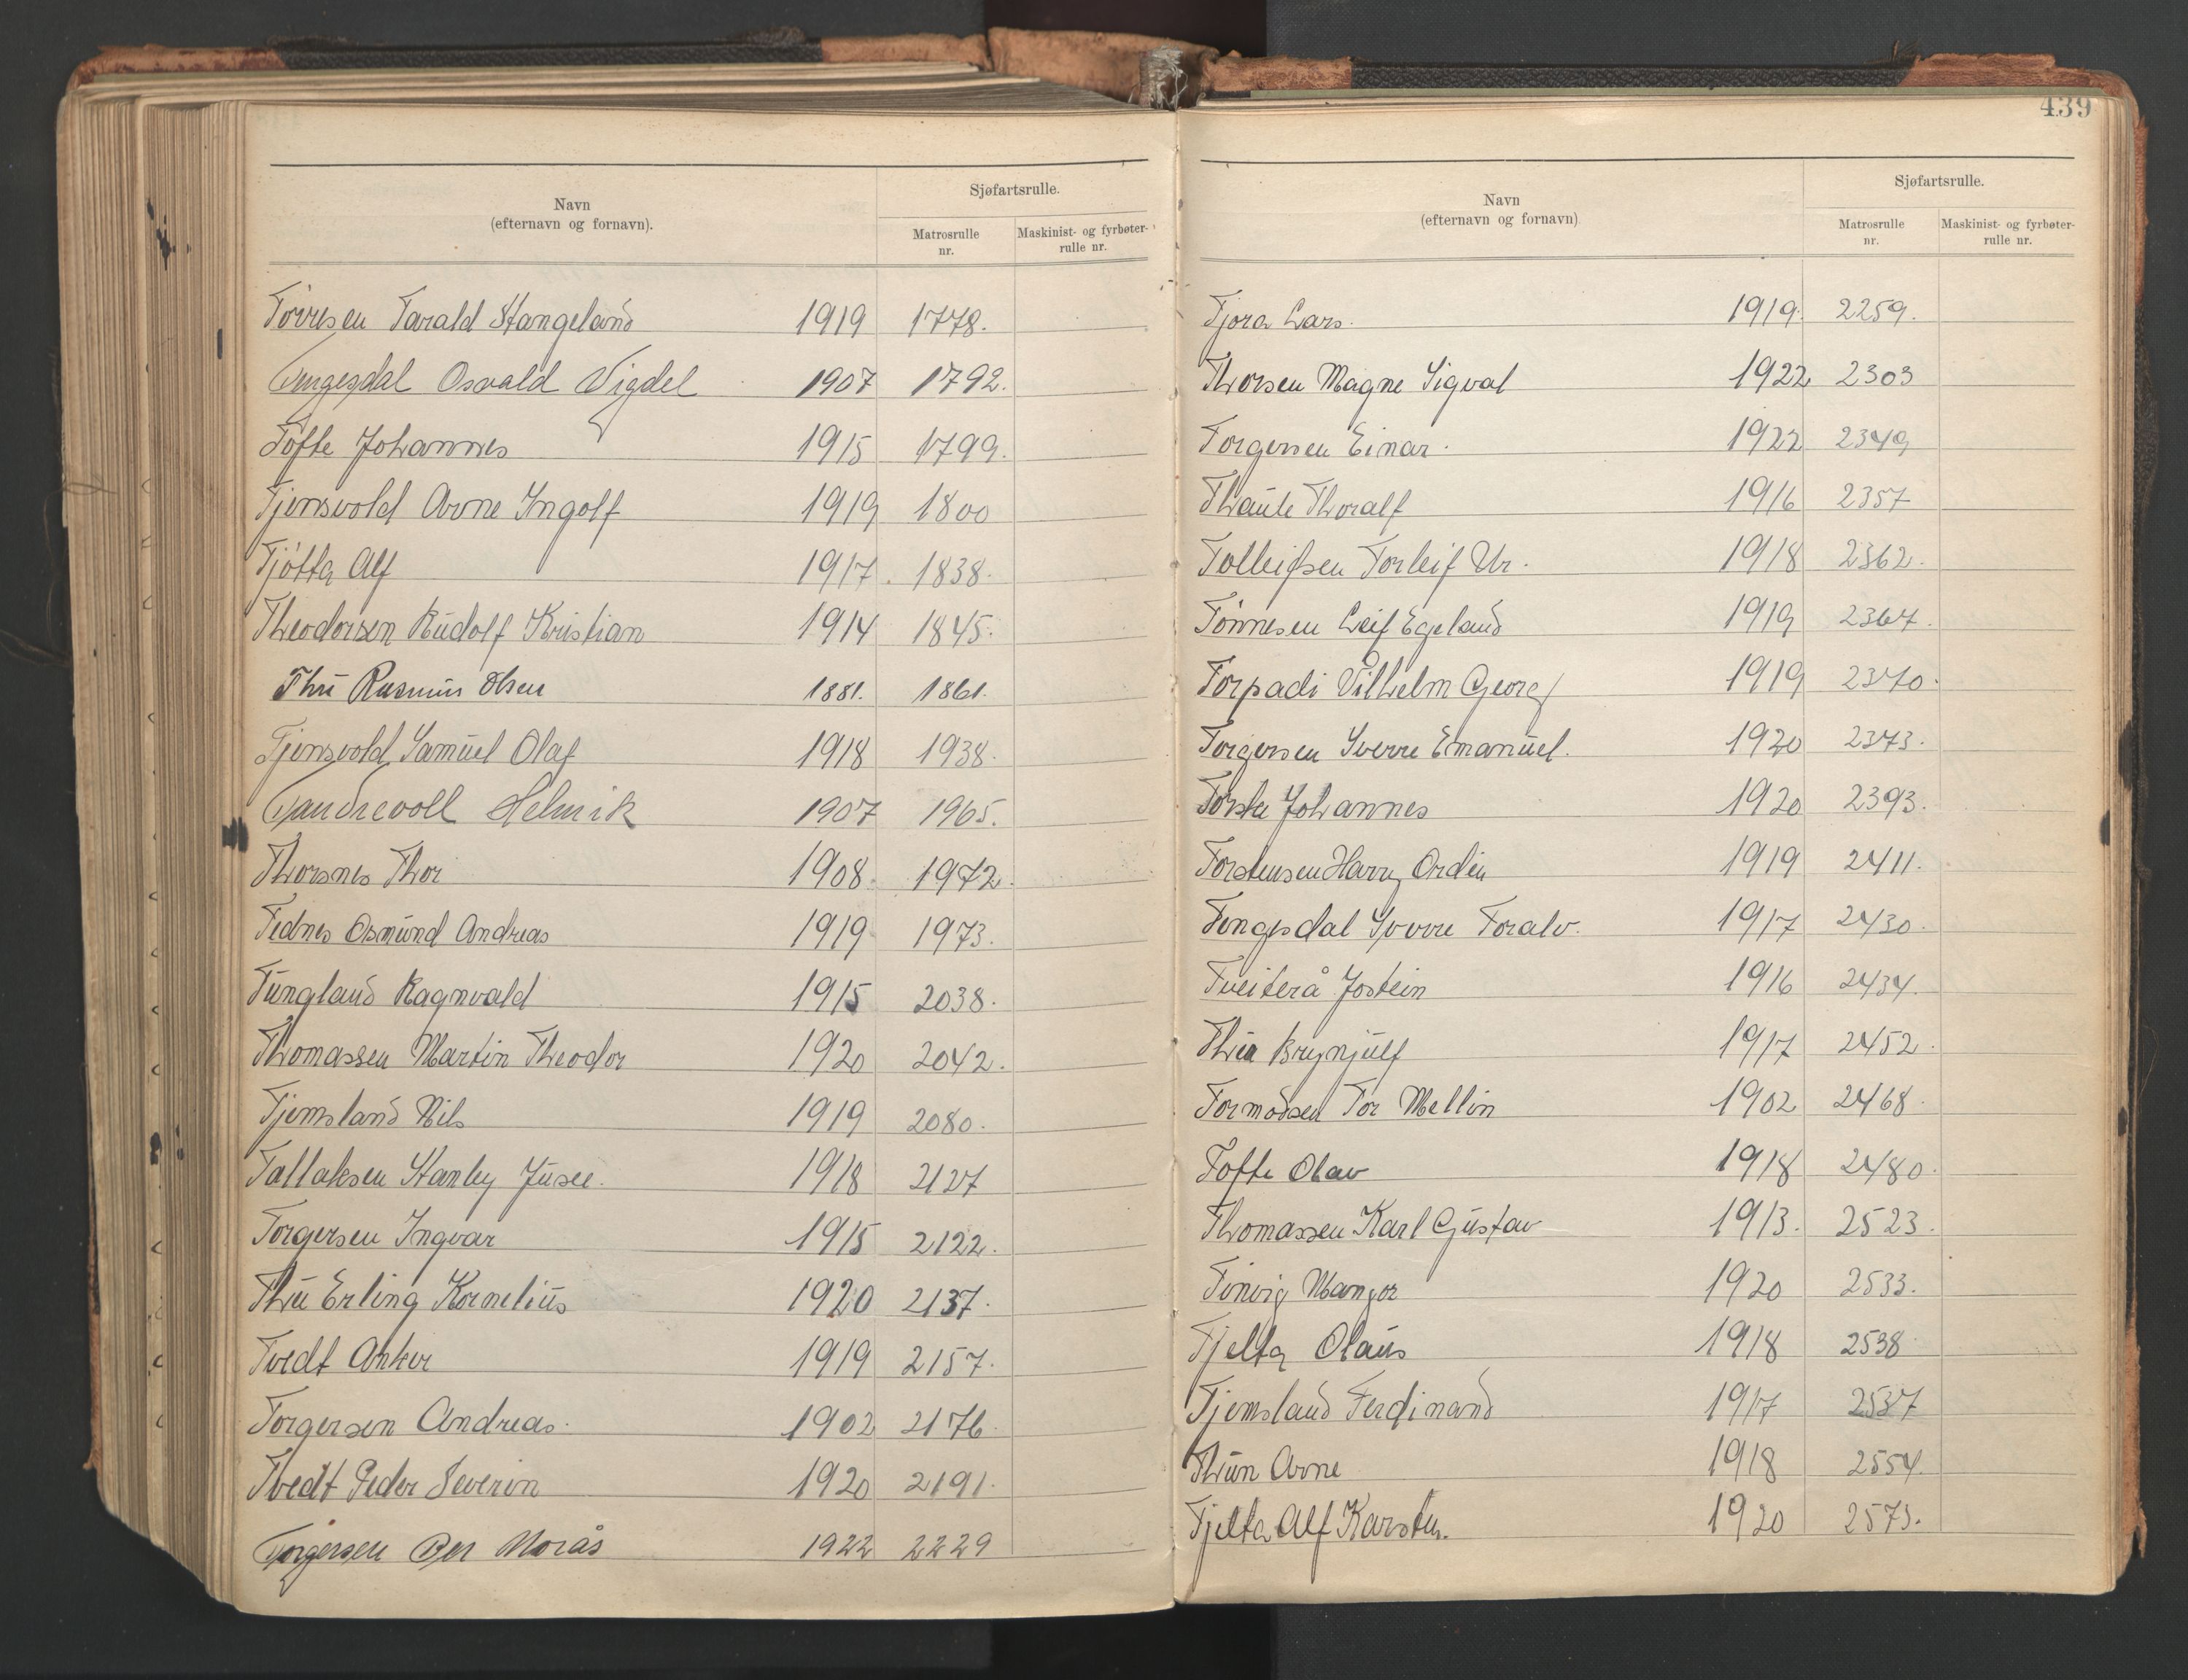 Navn
(efternavn og fornavn).
Sjøfartsrulle.
Matrosrulle
nr.
Maskinist- og fyrbøter-
rulle nr.
Tørresen Tarald Stangeland 1919 1778.
Tengesdal Osvald Vigdel 1907 1792.
Tofte Johannes 1915 1799.
Tjensvold Arne Ingolf 1919 1800
Tjøtta Alf 1917. 1838.
Theodorsen Rudolf Kristian 1914 1845.
Thu Rasmus Olsen 1881. 1861.
Tjensvold Samuel Olaf 1918 1938.
Tandrevoll Helmik 1907 1965.
Thorsnes Thor 1908. 1972.
Tednes Osmund Andreas 1919 1973.
Tungland Ragnvald 1915 2038.
Thomassen Martin Theodor 1920 2042.
Tjemsland Nils 1919 2080.
Tallaksen Stanley 1918 2127
Torgersen Ingvar 1915 2122.
Thu Erling Kornelius 1920 2137.
Tvedt Anker 1919 2157.
Torgersen Andreas. 1902 2176
Tvedt Peder Severin 1920 2191.
Torgersen Per Morås 1922 2229
439
Navn
(efternavn og fornavn)
Sjøfartsrulle.
Matrosrulle
nr.
Maskinist- og fyrbøter-
rulle nr.
Tjora Lars. 1919. 2259.
Thorsen Magne Sigval 1922 2303
Torgersen Einar. 1922 2349
Thaule Thoralf 1916 2357
Tolleifsen Torleif Ur. 1918 2362.
Tønnesen Leif Egeland 1919 2367.
Torpadi Vilhelm Georg 1919 2370.
Torgersen Sverre Emanuel. 1920 2373.
Torske Johannes 1920 2393.
Torstensen Harry Ordin 1919 2411.
Tengesdal Sverre Toralv. 1917 2430.
Tveiterå Jostein 1916 2434.
Brynjulf 1917 2452.
Tormodsen Tor Mellin 1902 2468.
Tofte Olav 1918 2480.
Thomassen Karl Gustav 1913. 2523.
Tinvig Mangor 1920 2533.
Tjelta Olaus 1918 2538
Tjemsland Ferdinand 1917 2537
Thun Arne 1918 2554.
Tjelta Alf Karsten. 1920 2573.